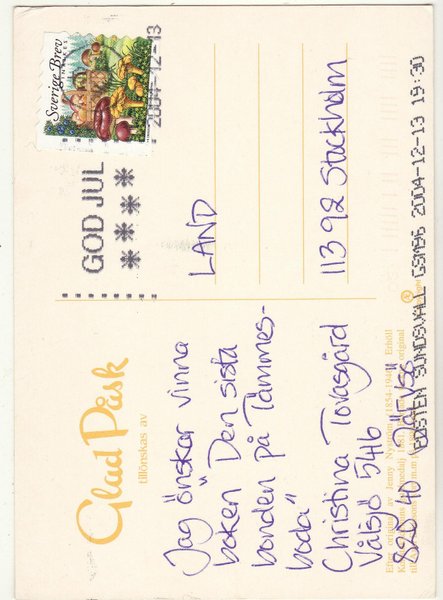 Glad Påsk
tillönskas av
Jag önskar vinna
boken "Den sista
bonden på Tammes-
boda"
Christina Tovasgård
Valsjö 546
820 40 Järvsö
Sverige Brev
INRIKES
2004-12-13
GOD JUL
LAND
113 92 Stockholm
POSTEN SUNDSVALL GSM96 2004-12-13 19:30
Efter original av Jenny Nyström (1854-1946). Erhöll